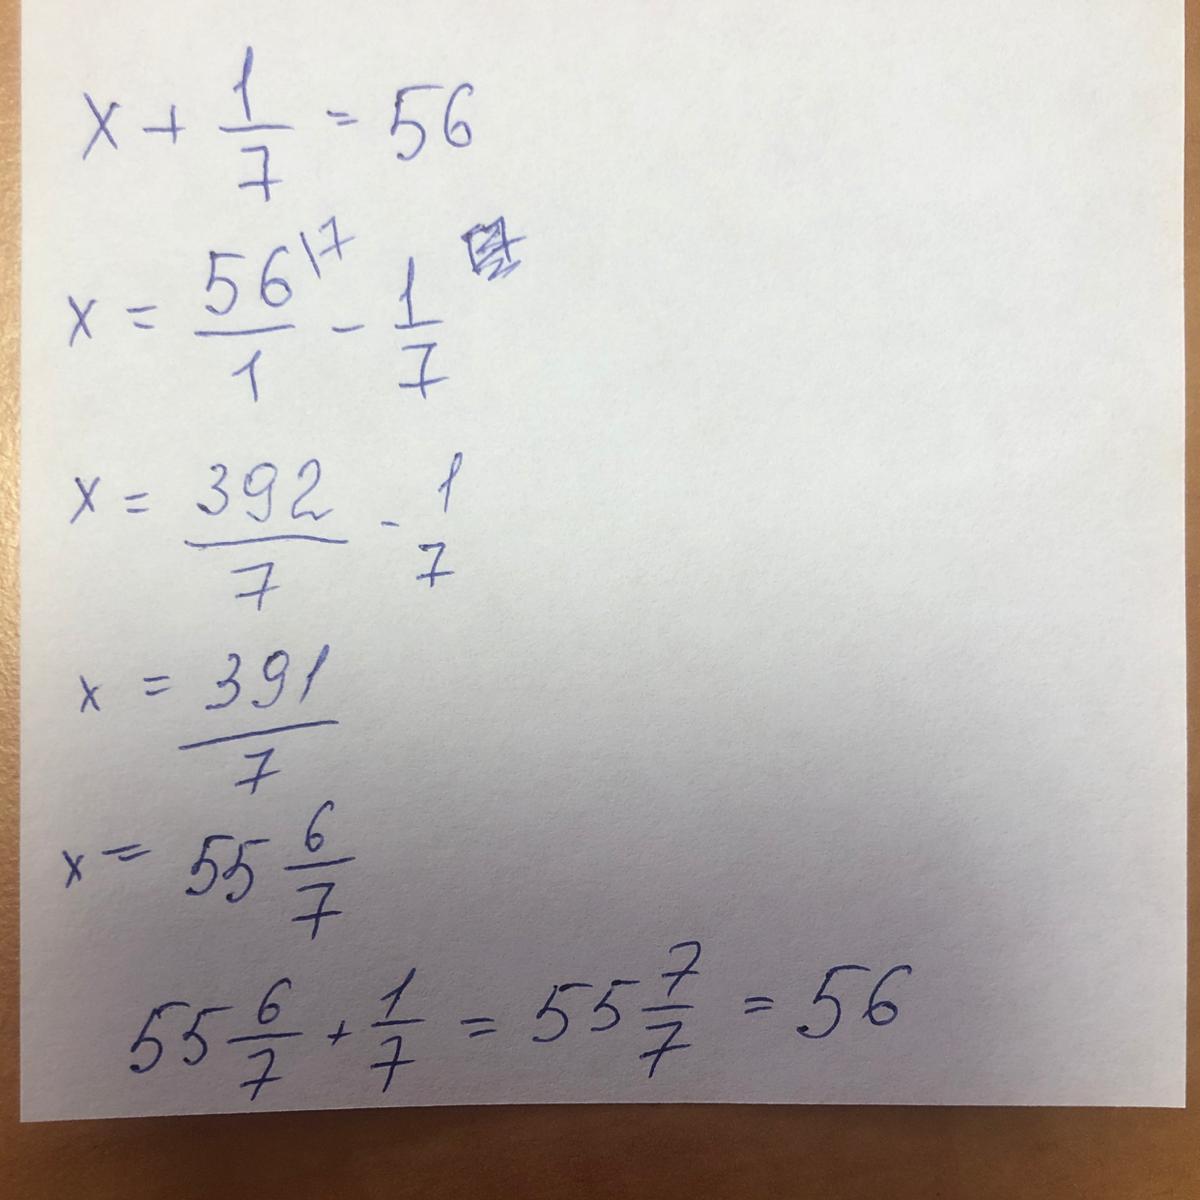 x + 1/7 = 56
x = 56\7/1 - 1/7
x = 392/7 - 1/7
x = 391/7
x = 55 6/7
55 6/7 + 1/7 = 55 7/7 = 56